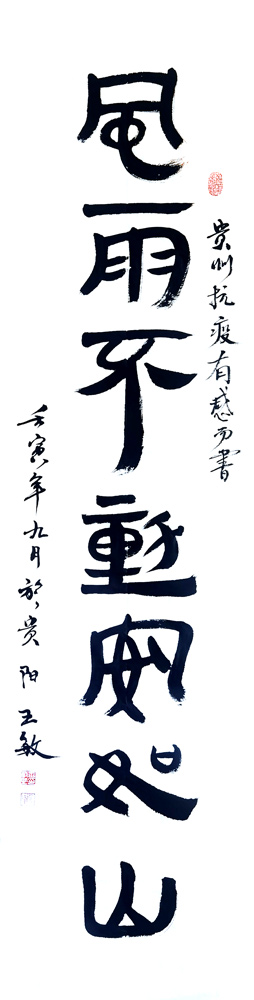 風雨不動安如山
贵州抗疫有感而書
壬寅年九月於贵阳王敏